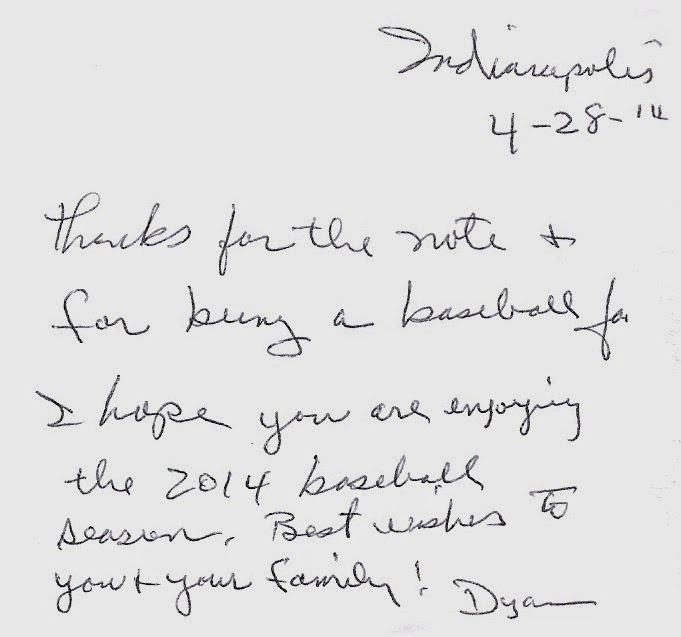 Indianapolis
4-28-14
Thanks for the note +
for being a baseball fan
I hope you are enjoying
the 2014 baseball
season. Best wishes to
you + your family!
Dyar